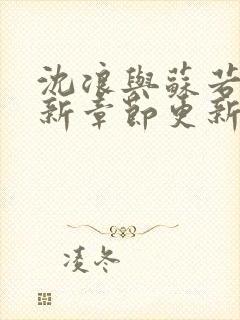 沈浪與蘇若
新章節更新
凌冬